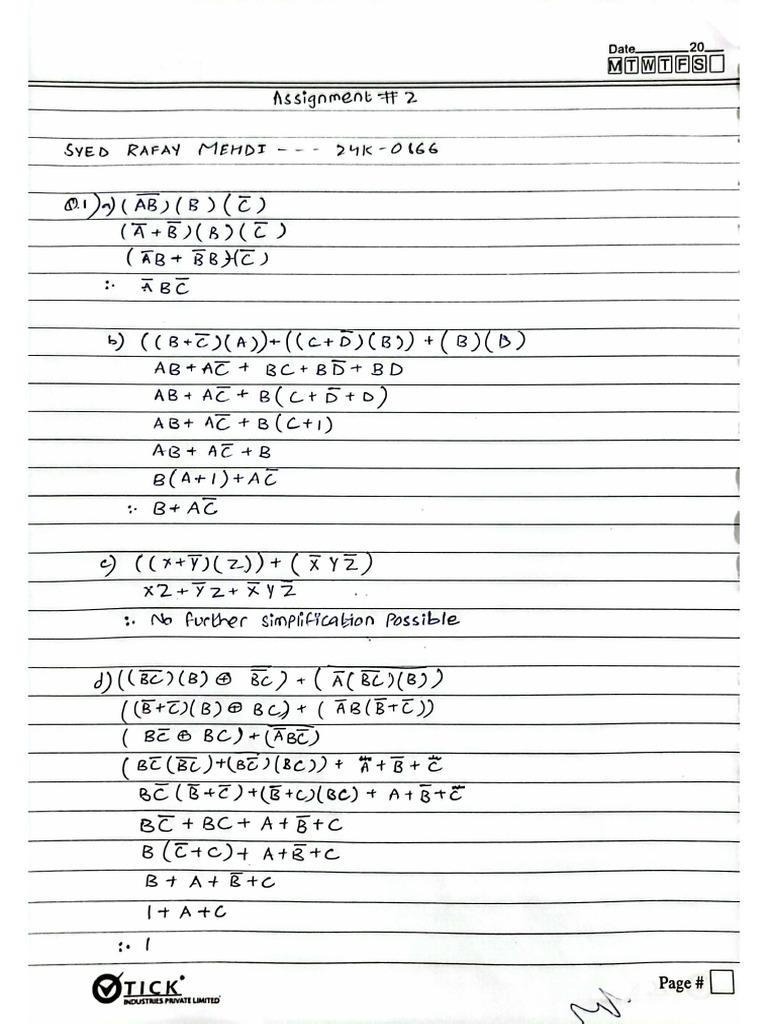 Date 20
M T W T F S
Assignment # 2
SYED RAFAY MEHDI --- 24K-0166
Q.1) a) (A̅B̅)(B)(C̅)
(A̅+B̅)(B)(C̅)
(A̅B+B̅B)(C̅)
∴ A̅BC̅
b) ((B+C̅)(A))+((C+D̅)(B))+(B)(D)
AB+AC̅ + BC+BD̅+BD
AB+AC̅+B(C+D̅+D)
AB+AC̅+B(C+1)
AB+AC̅+B
B(A+1)+AC̅
∴ B+AC̅
c) ((X+Y̅)(Z))+(X̅YZ̅)
XZ+Y̅Z+X̅YZ̅
∴ No further simplification possible
d) ((B̅C̅)(B)⊕B̅C̅)+(A̅(B̅C̅)(B))
((B̅+C̅)(B)⊕BC)+(A̅B(B̅+C̅))
(BC̅⊕BC)+(A̅BC̅)
(BC̅(B̅C̅)+(BC̅)(BC))+A̅+B̅+C̅
BC̅(B̅+C̅)+(B̅+C)(BC)+A+B̅+C̅
BC̅+BC+A+B̅+C
B(C̅+C)+A+B̅+C
B+A+B̅+C
1+A+C
∴ 1
TICK
INDUSTRIES PRIVATE LIMITED
Page #